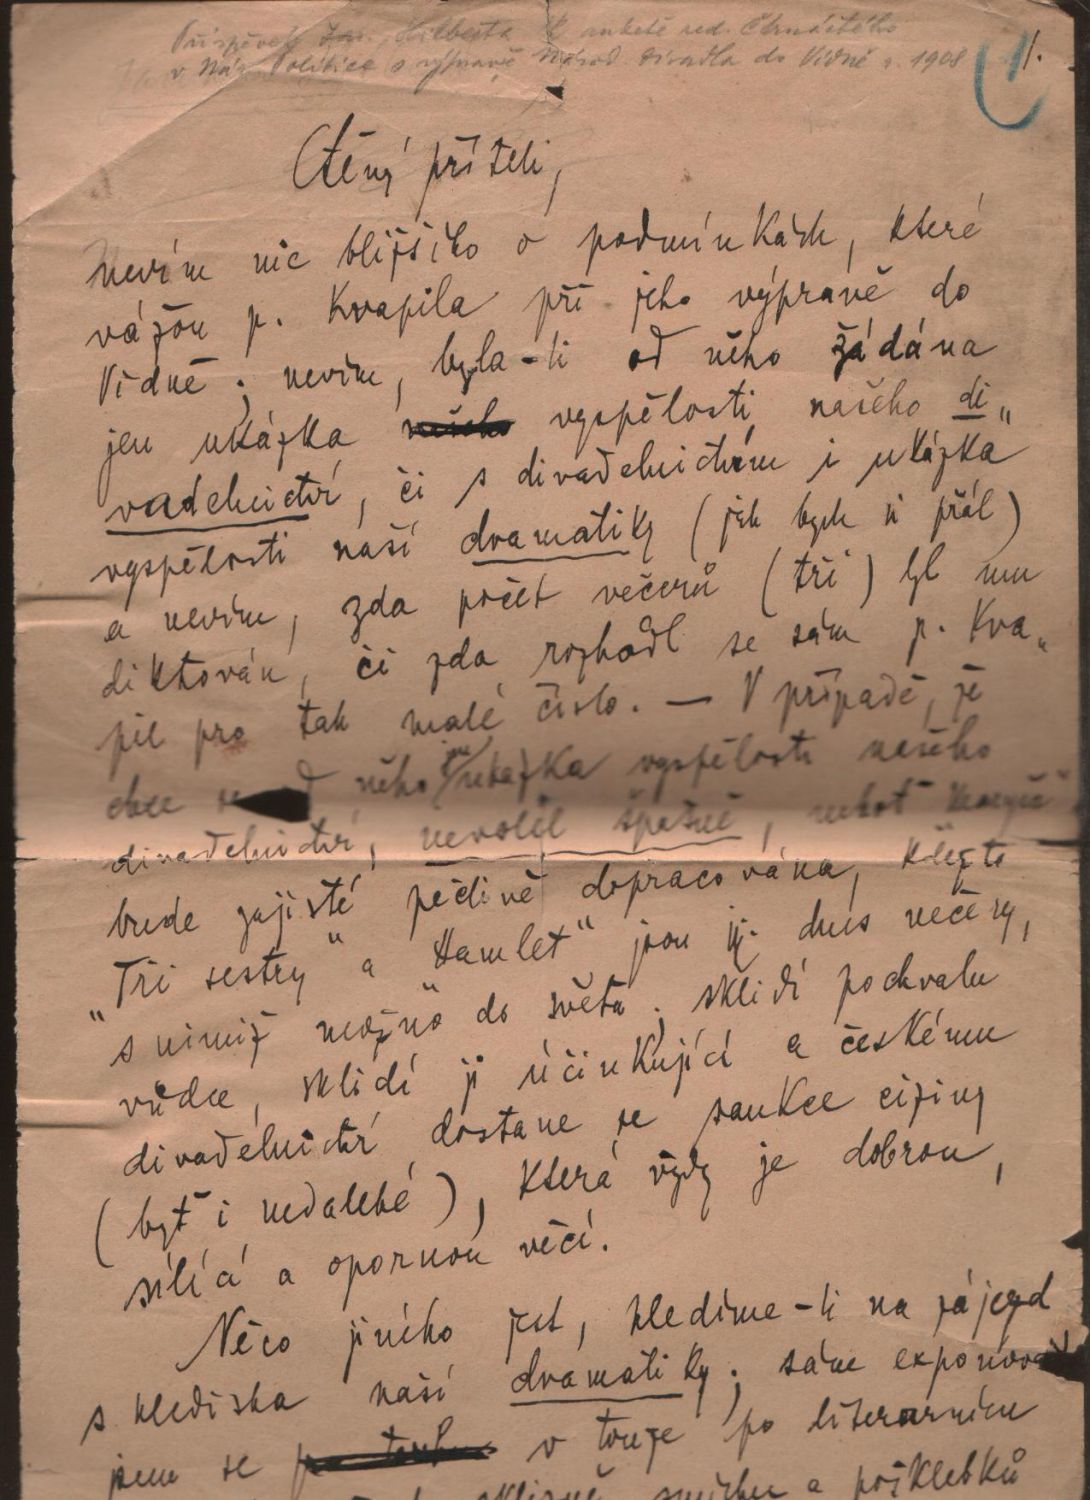 Příspěvek Jar. Hilberta k anketě red. Čtrnáctého
v Nár. Politice o výpravě Národ. divadla do Vídně r. 1908
1.
Ctěný příteli,
nevím nic bližšího o podmínkách, které
vážou p. Kvapila při jeho výpravě do
Vídně; nevím, byla-li od něho žádána
jen ukázka našeho vyspělosti našeho di„
vadelnictví, či s divadelnictvím i ukázka
vyspělosti naší dramatiky (jak bych si přál)
a nevím, zda počet večerů (tři) byl mu
diktován, či zda rozhodl se sám p. Kva„
pil pro tak malé číslo. — V případě, že
chce se od něho jen ukázka vyspělosti našeho
divadelnictví, nevolil špatně, neboť
bude zajisté pečlivě dopracována, kdežto
„Tři sestry“ a „Hamlet“ jsou již dnes večery,
s nimiž možno do světa; sklidí pochvalu
vůdce, sklidí ji účinkující a českému
divadelnictví dostane se sankce ciziny
(byť i nedaleké), která vždy je dobrou,
sílící a opornou věcí.
Něco jiného jest, hledíme-li na zájezd
s hlediska naší dramatiky; sám exponoval
jsem se v touze po literárním
sklizně smíchu a pošklebků